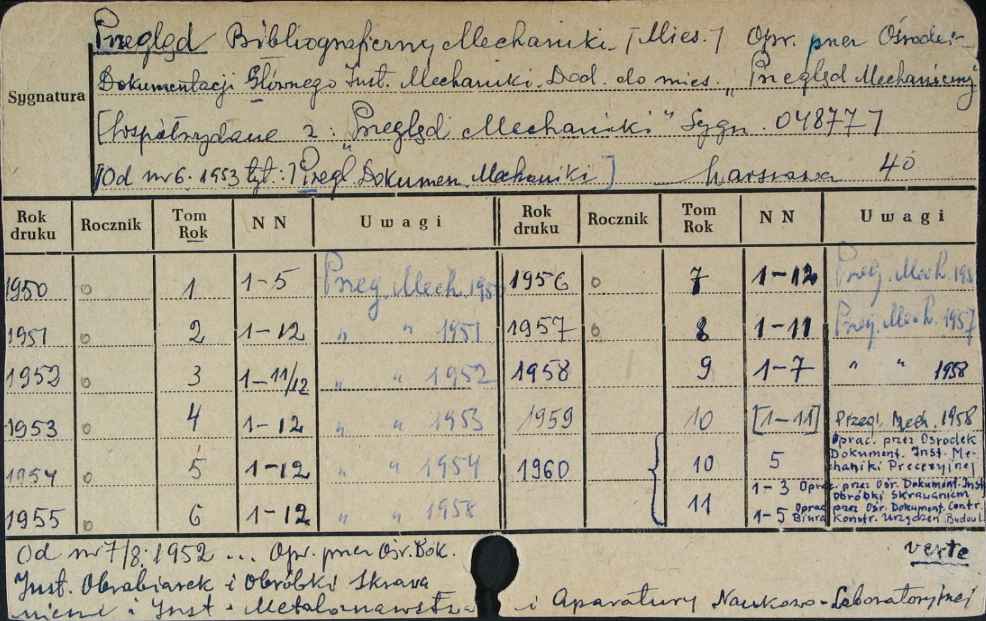 Przegląd Bibliograficzny Mechaniki. [Mies.] Opr. przez Ośrodek
Dokumentacji Głównego Inst. Mechaniki. Dod. do mies. "Przegląd Mechaniczny"
Sygnatura
[Współwydane z: "Przegląd Mechaniki" Sygn. 048777]
[Od nr 6. 1953 tyt.:] Przegl. Dokumen. Mechaniki] Warszawa 4°
Rok druku Rocznik Tom Rok NN Uwagi Rok druku Rocznik Tom Rok NN Uwagi
1950 o 1 1-5 Przeg. Mech. 1950 1956 o 7 1-12 Przeg. Mech.
1951 o 2 1-12 " " 1951 1957 o 8 1-11 Przeg. Mech. 1957
1952 o 3 1-11/12 " " 1952 1958 9 1-7 " " 1958
1953 o 4 1-12 " " 1953 1959 10 [1-11] Przegl. Mech. 1958
1954 o 5 1-12 " " 1954 1960 10 5 Oprac. przez Ośrodek Dokument. Inst. Mechaniki Precezyjnej
11 1-3 Oprac. przez Ośr. Dokument. Inst. Obróbki Skrawaniem
1955 o 6 1-12 " " 1958 1-5 Oprac. przez Ośr. Dokument. Contr. Biura Konstr. Urządzeń Budowl.
Od nr 7/8. 1952 ... Opr. przez Ośr. Dok. verte
Inst. Obrabiarek i Obróbki Skrawa
niem i Inst. Metaloznawstwa i Aparatury Naukowo-Laboratoryjnej